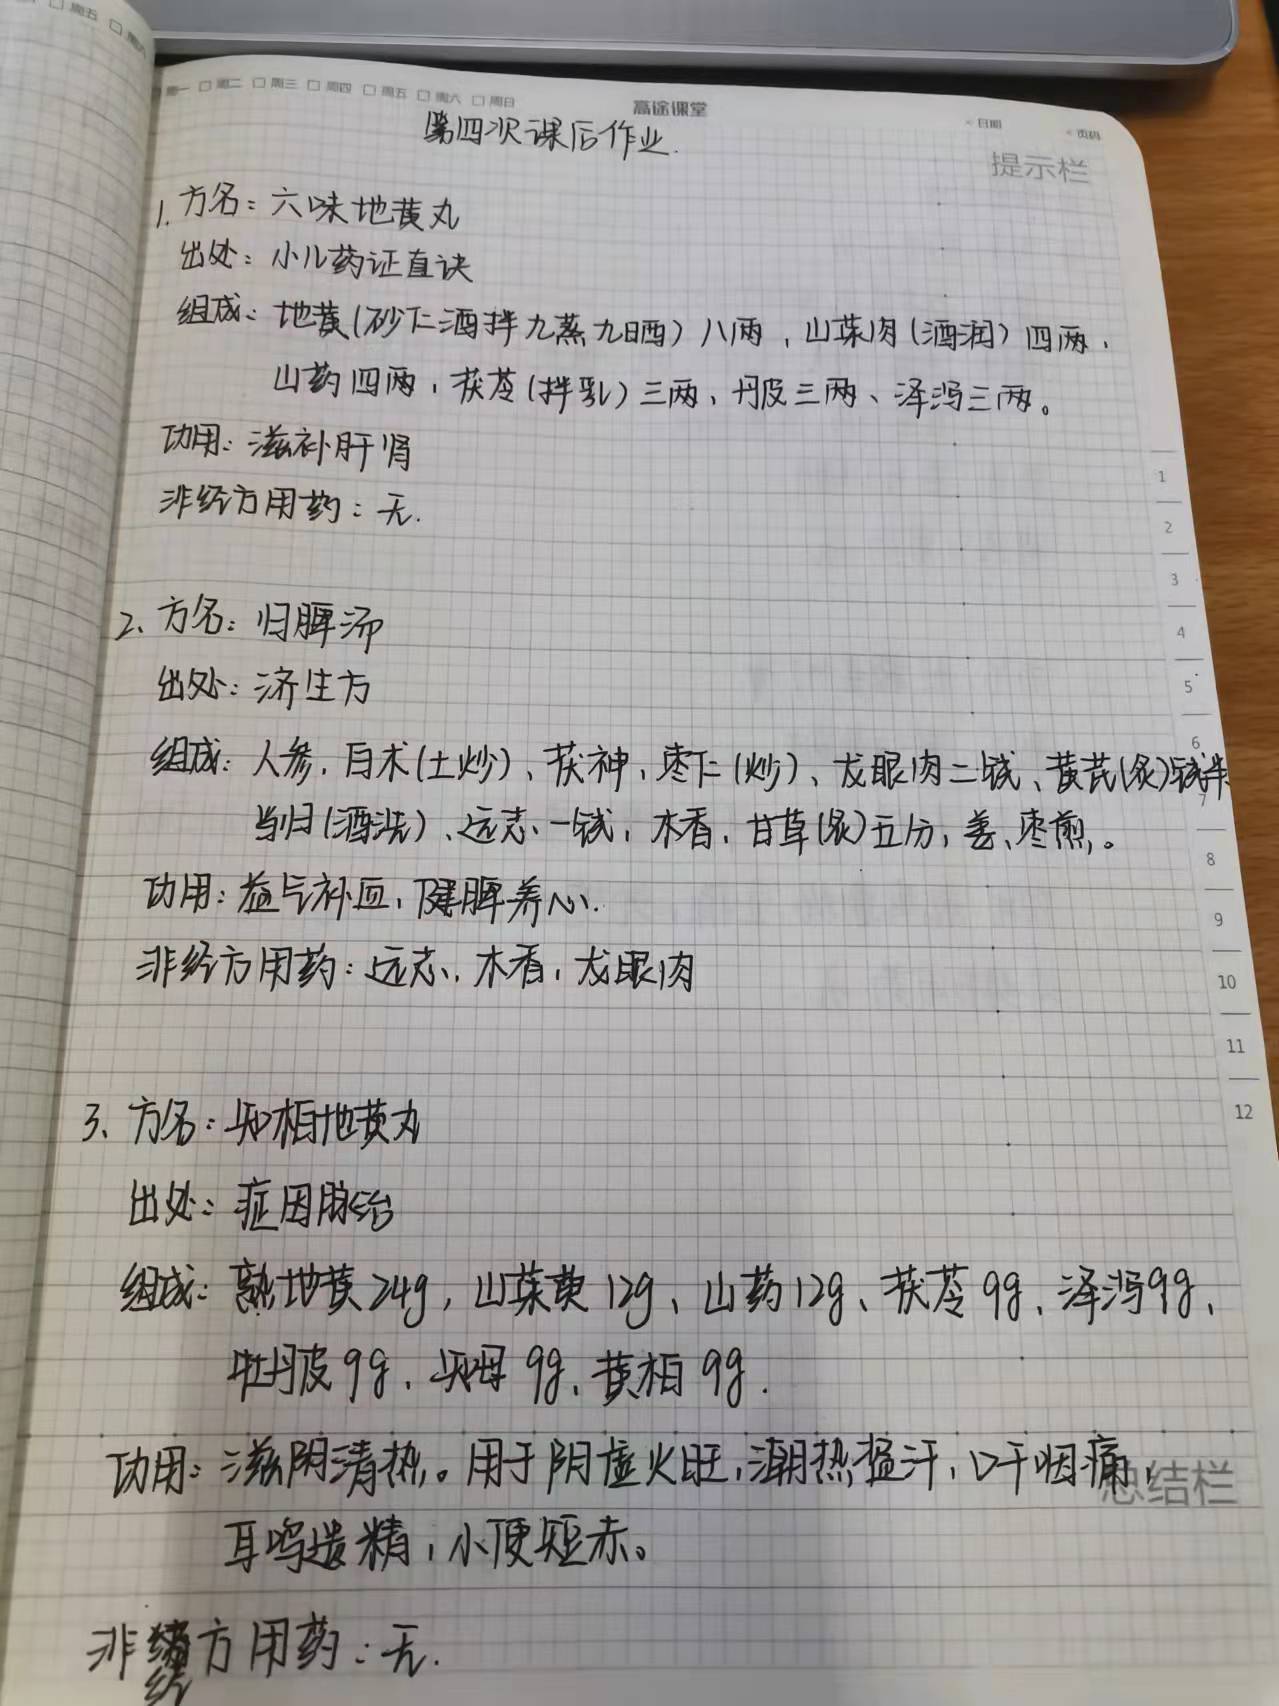 周五
□周一 □周二 □周三 □周四 □周五 □周六 □周日
高途课堂
<日期
<页码
第四次课后作业.
提示栏
1. 方名：六味地黄丸
出处：小儿药证直诀
组成：地黄(砂仁酒拌九蒸九晒)八两，山萸肉(酒润)四两，
山药四两，茯苓(拌乳)三两、丹皮三两、泽泻三两。
功用：滋补肝肾
非经方用药：无.
2、方名：归脾汤
出处：济生方
组成：人参，白术(土炒)、茯神，枣仁(炒)、龙眼肉二钱、黄芪(炙)钱半
当归(酒洗)、远志、一钱，木香，甘草(炙)五分，姜、枣煎。
功用：益气补血，健脾养心.
非经方用药：远志，木香，龙眼肉
3、方名：知柏地黄丸
出处：症因脉治
组成：熟地黄24g，山茱萸12g、山药12g、茯苓9g、泽泻9g、
牡丹皮9g、知母9g、黄柏9g.
功用：滋阴清热。用于阴虚火旺，潮热盗汗，口干咽痛，
耳鸣遗精，小便短赤。
非经方用药：无.
总结栏
1
2
3
4
5
6
7
8
9
10
11
12